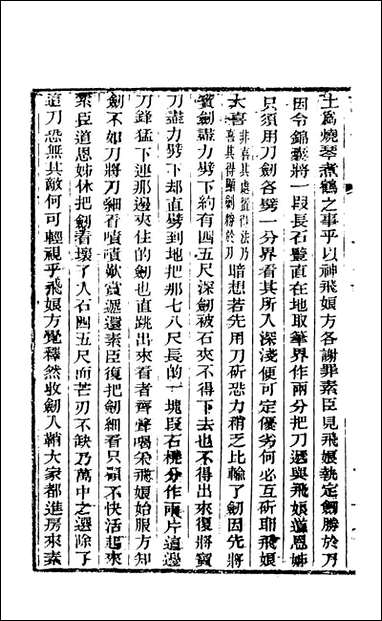 士爲燒琴煮鶴之事乎以神飛娘方各謝罪素臣見飛娘執定劍勝於刀
因令錦囊將一段長石豎直在地取筆界作兩分把刀遞與飛娘道恩姊
只須用刀劍各劈一分界看其所入深淺便可定優劣何必互斫耶飛娘
大喜非喜其處置得法乃喜其得顯劍勝於刀暗想若先用刀斫恐力稍乏比輸了劍因先將
寳劍盡力劈下約有四五尺深劍被石夾不得下去也不得出來復將寳
刀盡力劈下却直劈到地把那七八尺長的一塊段石橈分作兩片這邊
刀鋒猛下連那邊夾住的劍也直跳出來看者齊聲喝采飛娘始服方知
劍不如刀將刀細看嘖嘖歎賞遞還素臣復把劍細看只顧不快活起來
素臣道恩姊休把劍看壞了入石四五尺而芒刃不缺乃萬中之選除了
這刀恐無其敵何可輕視乎飛娘方覺釋然收劍入鞘大家都進房來素